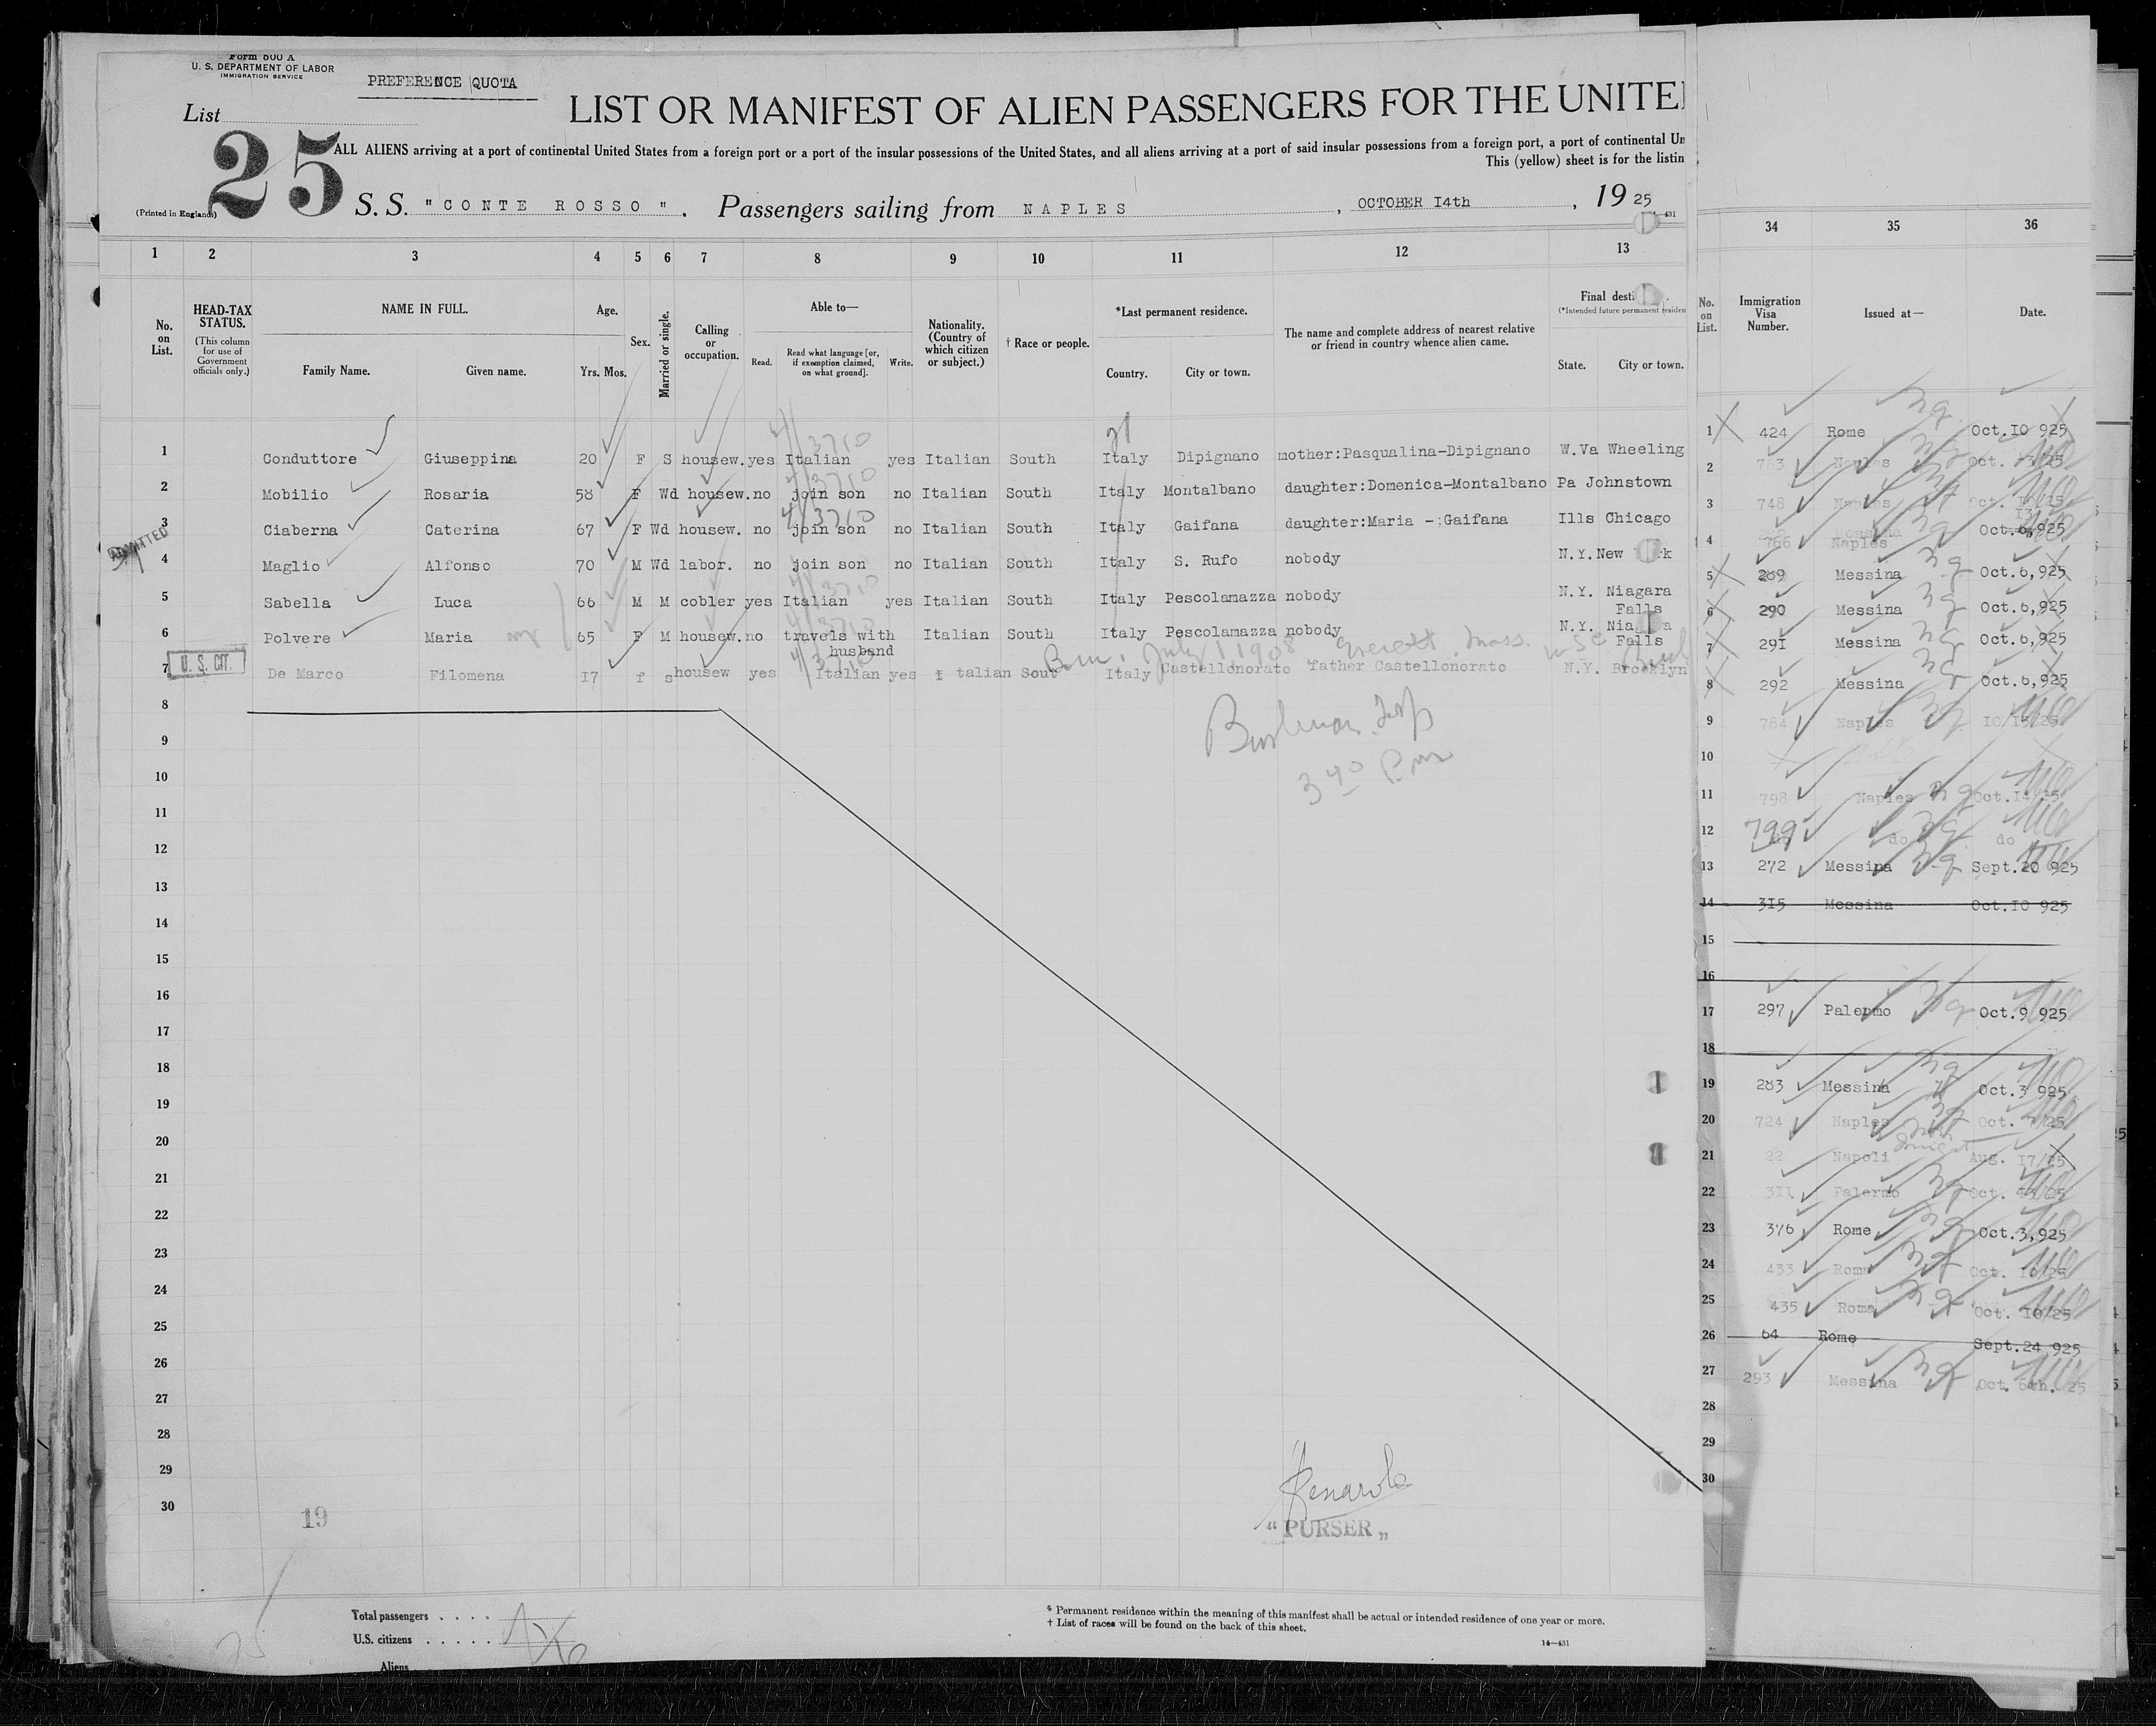 Form 600 A
U. S. DEPARTMENT OF LABOR
IMMIGRATION SERVICE
PREFERENCE QUOTA
List
25
LIST OR MANIFEST OF ALIEN PASSENGERS FOR THE UNITE
ALL ALIENS arriving at a port of continental United States from a foreign port or a port of the insular possessions of the United States, and all aliens arriving at a port of said insular possessions from a foreign port, a port of continental Un
This (yellow) sheet is for the listin
(Printed in England)
S. S. "CONTE ROSSO". Passengers sailing from NAPLES, OCTOBER I4th, 1925
1 2 3 4 5 6 7 8 9 10 11 12 13
No. on List.
HEAD-TAX STATUS.
(This column for use of Government officials only.)
NAME IN FULL.
Family Name. Given name.
Age.
Yrs. Mos.
Sex.
Married or single.
Calling or occupation.
Able to—
Read. Read what language [or, if exemption claimed, on what ground]. Write.
Nationality. (Country of which citizen or subject.)
† Race or people.
*Last permanent residence.
Country. City or town.
The name and complete address of nearest relative or friend in country whence alien came.
Final desti
(*Intended future permanent residen
State. City or town.
1 Conduttore Giuseppina 20 F S housew. yes Italian yes Italian South Italy Dipignano mother:Pasqualina-Dipignano W.Va Wheeling
2 Mobilio Rosaria 58 F Wd housew. no join son no Italian South Italy Montalbano daughter:Domenica-Montalbano Pa Johnstown
3 Ciaberna Caterina 67 F Wd housew. no join son no Italian South Italy Gaifana daughter:Maria -:Gaifana Ills Chicago
ADMITTED
4 Maglio Alfonso 70 M Wd labor. no join son no Italian South Italy S. Rufo nobody N.Y. New
5 Sabella Luca 66 M M cobler yes Italian yes Italian South Italy Pescolamazza nobody N.Y. Niagara Falls
6 Polvere Maria 65 F M housew. no travels with husband Italian South Italy Pescolamazza nobody N.Y. Falls
Born, July 1 1908 Everett, Mass.
U. S. CIT.
7 De Marco Filomena I7 f s housew yes Italian yes I talian Sout Italy Castellonorato father Castellonorato N.Y. Brooklyn
8
9
10
3 40 Pm
11
12
13
14
15
16
17
18
19
20
21
22
23
24
25
26
27
28
29
30
19
"PURSER"
Total passengers . . . .
U.S. citizens . . . . .
Aliens
* Permanent residence within the meaning of this manifest shall be actual or intended residence of one year or more.
† List of races will be found on the back of this sheet.
14—431
34 35 36
No. on List.
Immigration Visa Number.
Issued at—
Date.
1 424 Rome Oct.I0 925
2 763 Naples Oct.
3 748 Naples Oct.
4 766 Naples Oct. 925
5 289 Messina Oct.6,925
6 290 Messina Oct.6,925
7 29I Messina Oct.6,925
8 292 Messina Oct.6,925
9 784 Naples I0/I3/25
10
11 798 Naples Oct.I4/25
12 799 do do
13 272 Messina Sept.20 925
14 3I5 Messina Oct.I0 925
15
16
17 297 Palermo Oct.9 925
18
19 283 Messina Oct.3 925
20 724 Naples Oct. /25
21 22 Napoli Aug. I7/25
22 3II Palermo Oct.
23 376 Rome Oct.3,925
24 433 Roma Oct. I0/25
25 435 Roma Oct. I0/25
26 64 Rome Sept.24 925
27 293 Messina Oct. 6th. 25
28
29
30